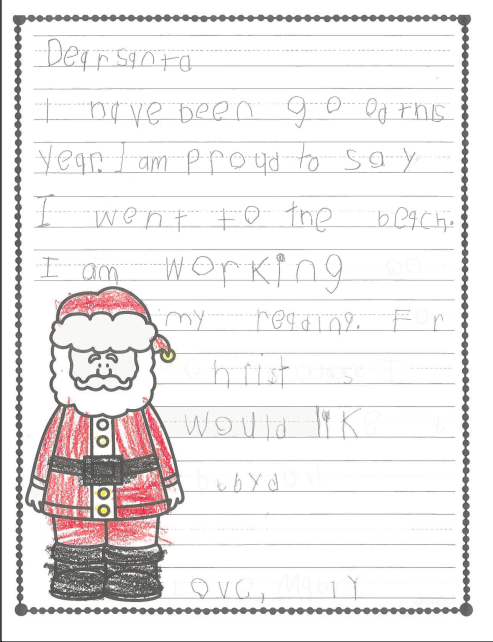 Dear santa
I have been go od this
year. I am proud to say
I went to the beach.
I am working on
my reading. For
hrist s
would lik
bebyd
ove,